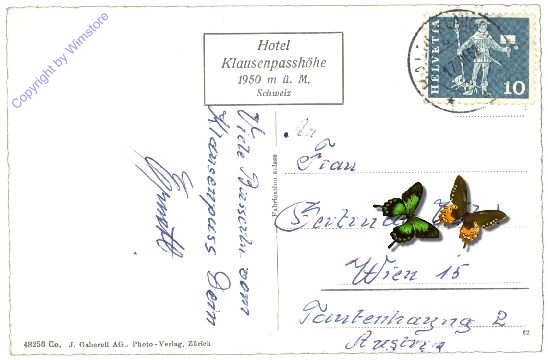 Copyright by Wimstore
Hotel
Klausenpasshöhe
1950 m ü. M.
Schweiz
HELVETIA
10
Viele Busserln vom
Klausenpass Dein
An
Frau
Wien 15
Austria
Fabrication suisse
48258 Co. J. Gaberell AG., Photo-Verlag, Zürich
62